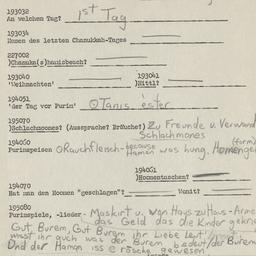 193032
An welchem Tag? 1st Tag
193034
Namen des letzten Chanukkah-Tages
227002
)Chanuka(s)hausisbench?
193040 193041
'Weihnachten' )Nittl?
194051
'der Tag vor Purin' OTanis ester
195070
)Schlachmones? (Aussprache? Bräuche?) Zu Freunde u. Verwand
Schlachmones
194060
Purimspeisen ORauchfleisch- because Haman was hung. Homengen (form)
194061
)Homentaschen?
194070
Hat man den Homen "geschlagen"? Womit?
195080
Purimspiele, -lieder - Maskirt u. von Haus zu Haus - Arme
das Geld das die Kinder gekri
Gut Burem, Gut Burem ihr Liebe leit
wisst ihr auch was der Burem bedeut / der Burem
Und der Haman iss e rosche gewesen